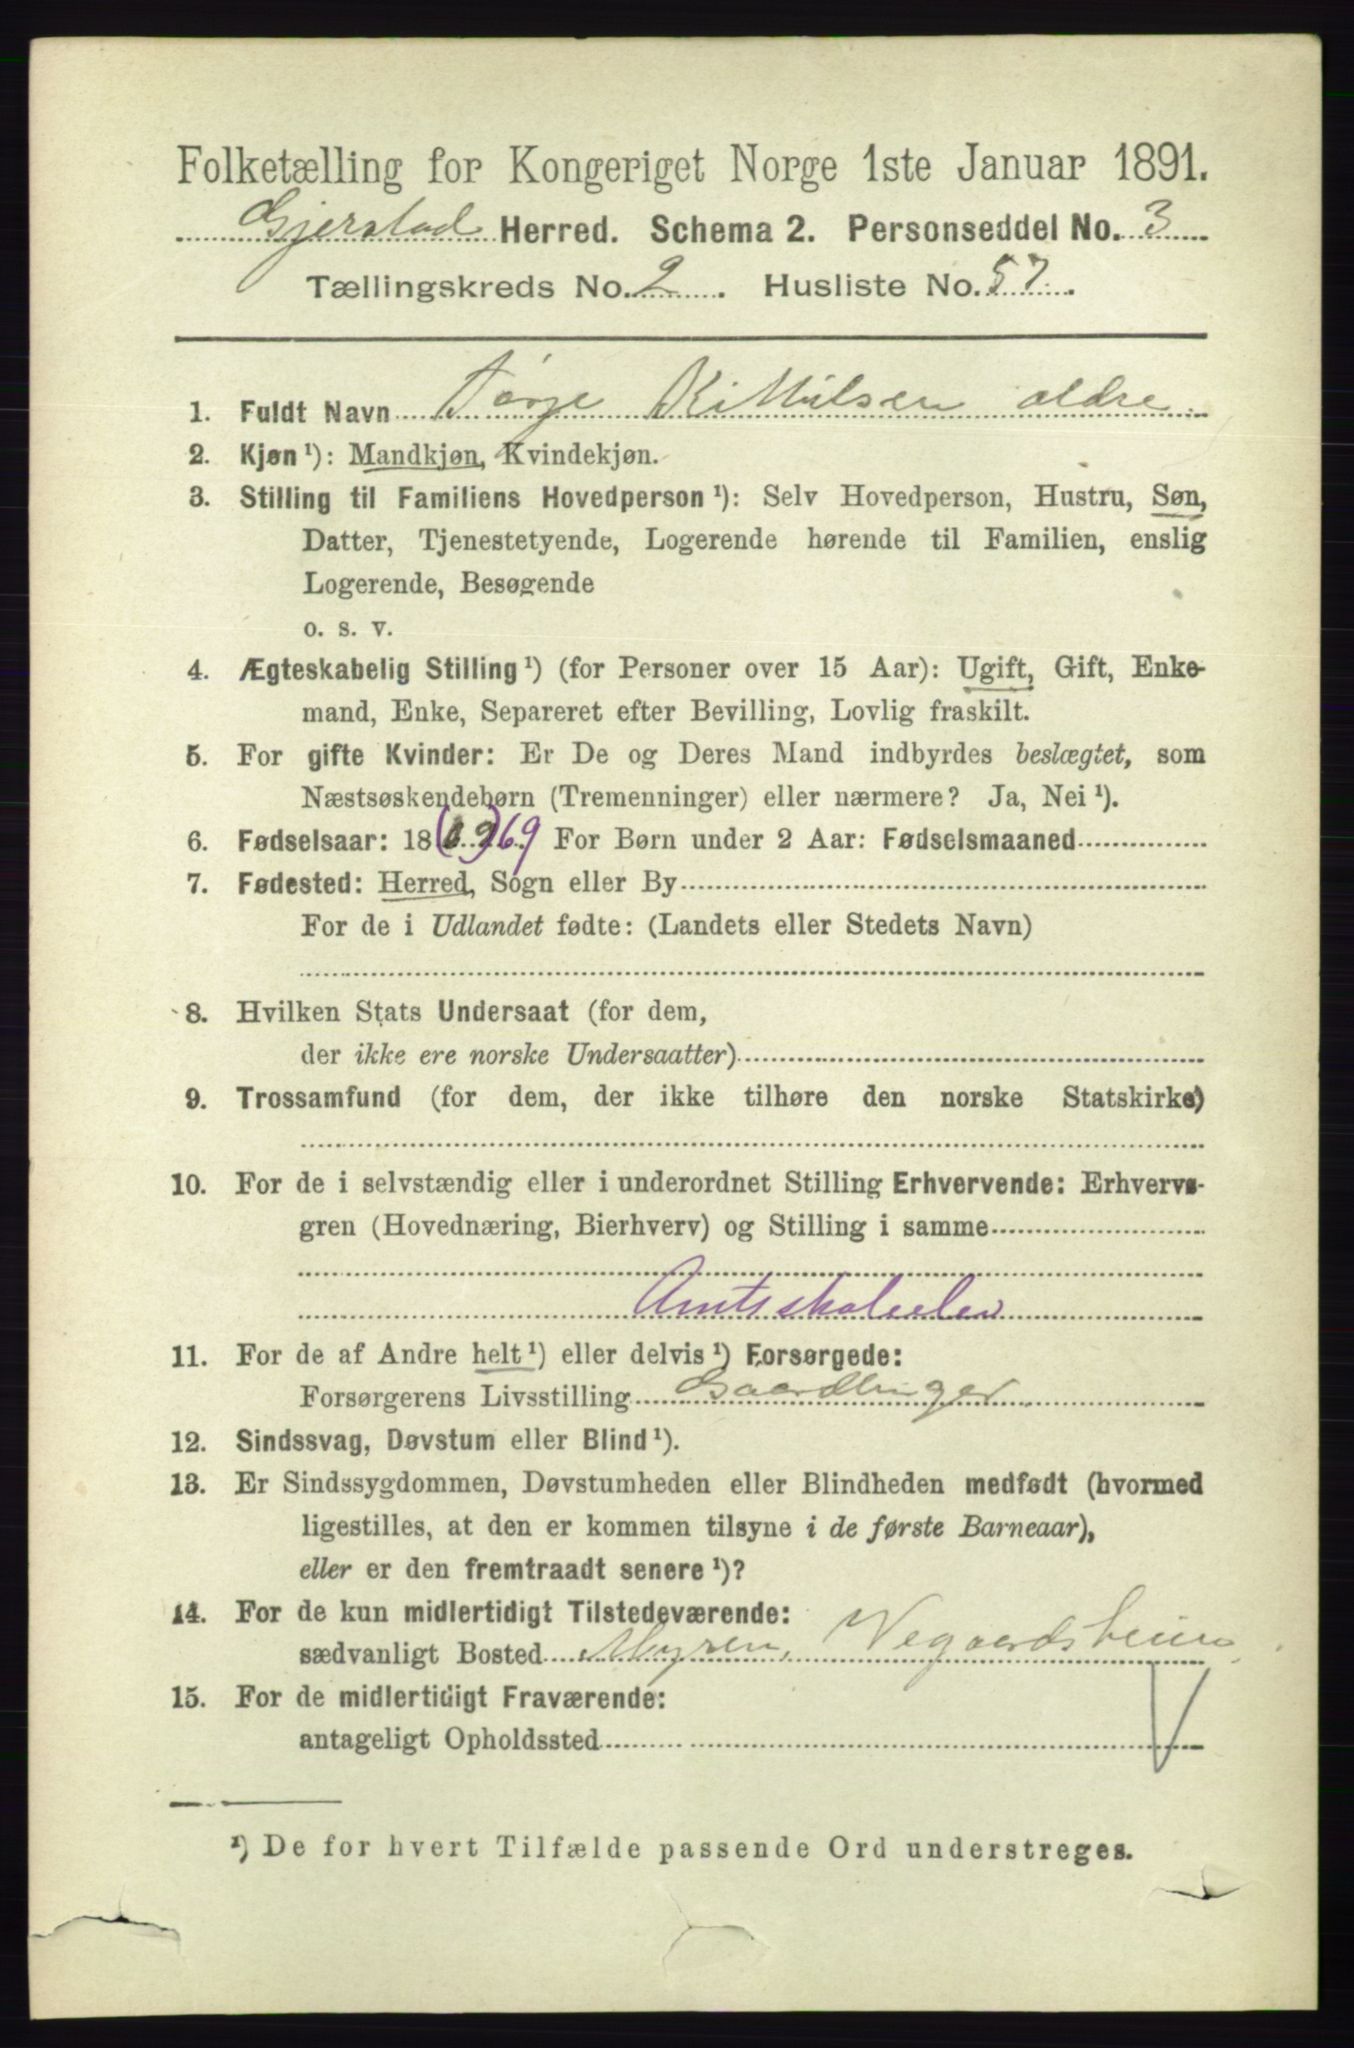 Folketælling for Kongeriget Norge 1ste Januar 1891.
Gjerstad Herred. Schema 2. Personseddel No. 3
Tællingskreds No. 2. Husliste No. 57.
1. Fuldt Navn Tarje Kittilsen ældre
2. Kjøn ¹): Mandkjøn, Kvindekjøn.
3. Stilling til Familiens Hovedperson ¹): Selv Hovedperson, Hustru, Søn,
Datter, Tjenestetyende, Logerende hørende til Familien, enslig
Logerende, Besøgende
o. s. v.
4. Ægteskabelig Stilling ¹) (for Personer over 15 Aar): Ugift, Gift, Enke-
mand, Enke, Separeret efter Bevilling, Lovlig fraskilt.
5. For gifte Kvinder: Er De og Deres Mand indbyrdes beslægtet, som
Næstsøskendebørn (Tremenninger) eller nærmere? Ja, Nei ¹).
6. Fødselsaar: 18 69 For Børn under 2 Aar: Fødselsmaaned
7. Fødested: Herred, Sogn eller By
For de i Udlandet fødte: (Landets eller Stedets Navn)
8. Hvilken Stats Undersaat (for dem,
der ikke ere norske Undersaatter)
9. Trossamfund (for dem, der ikke tilhøre den norske Statskirke)
10. For de i selvstændig eller i underordnet Stilling Erhvervende: Erhvervs-
gren (Hovednæring, Bierhverv) og Stilling i samme
Amtsskoleelev
11. For de af Andre helt ¹) eller delvis ¹) Forsørgede:
Forsørgerens Livsstilling Gaardbruger
12. Sindssvag, Døvstum eller Blind ¹).
13. Er Sindssygdommen, Døvstumheden eller Blindheden medfødt (hvormed
ligestilles, at den er kommen tilsyne i de første Barneaar),
eller er den fremtraadt senere ¹)?
14. For de kun midlertidigt Tilstedeværende:
sædvanligt Bosted Myren, Vegaardsheien
15. For de midlertidigt Fraværende:
antageligt Opholdssted
¹) De for hvert Tilfælde passende Ord understreges.